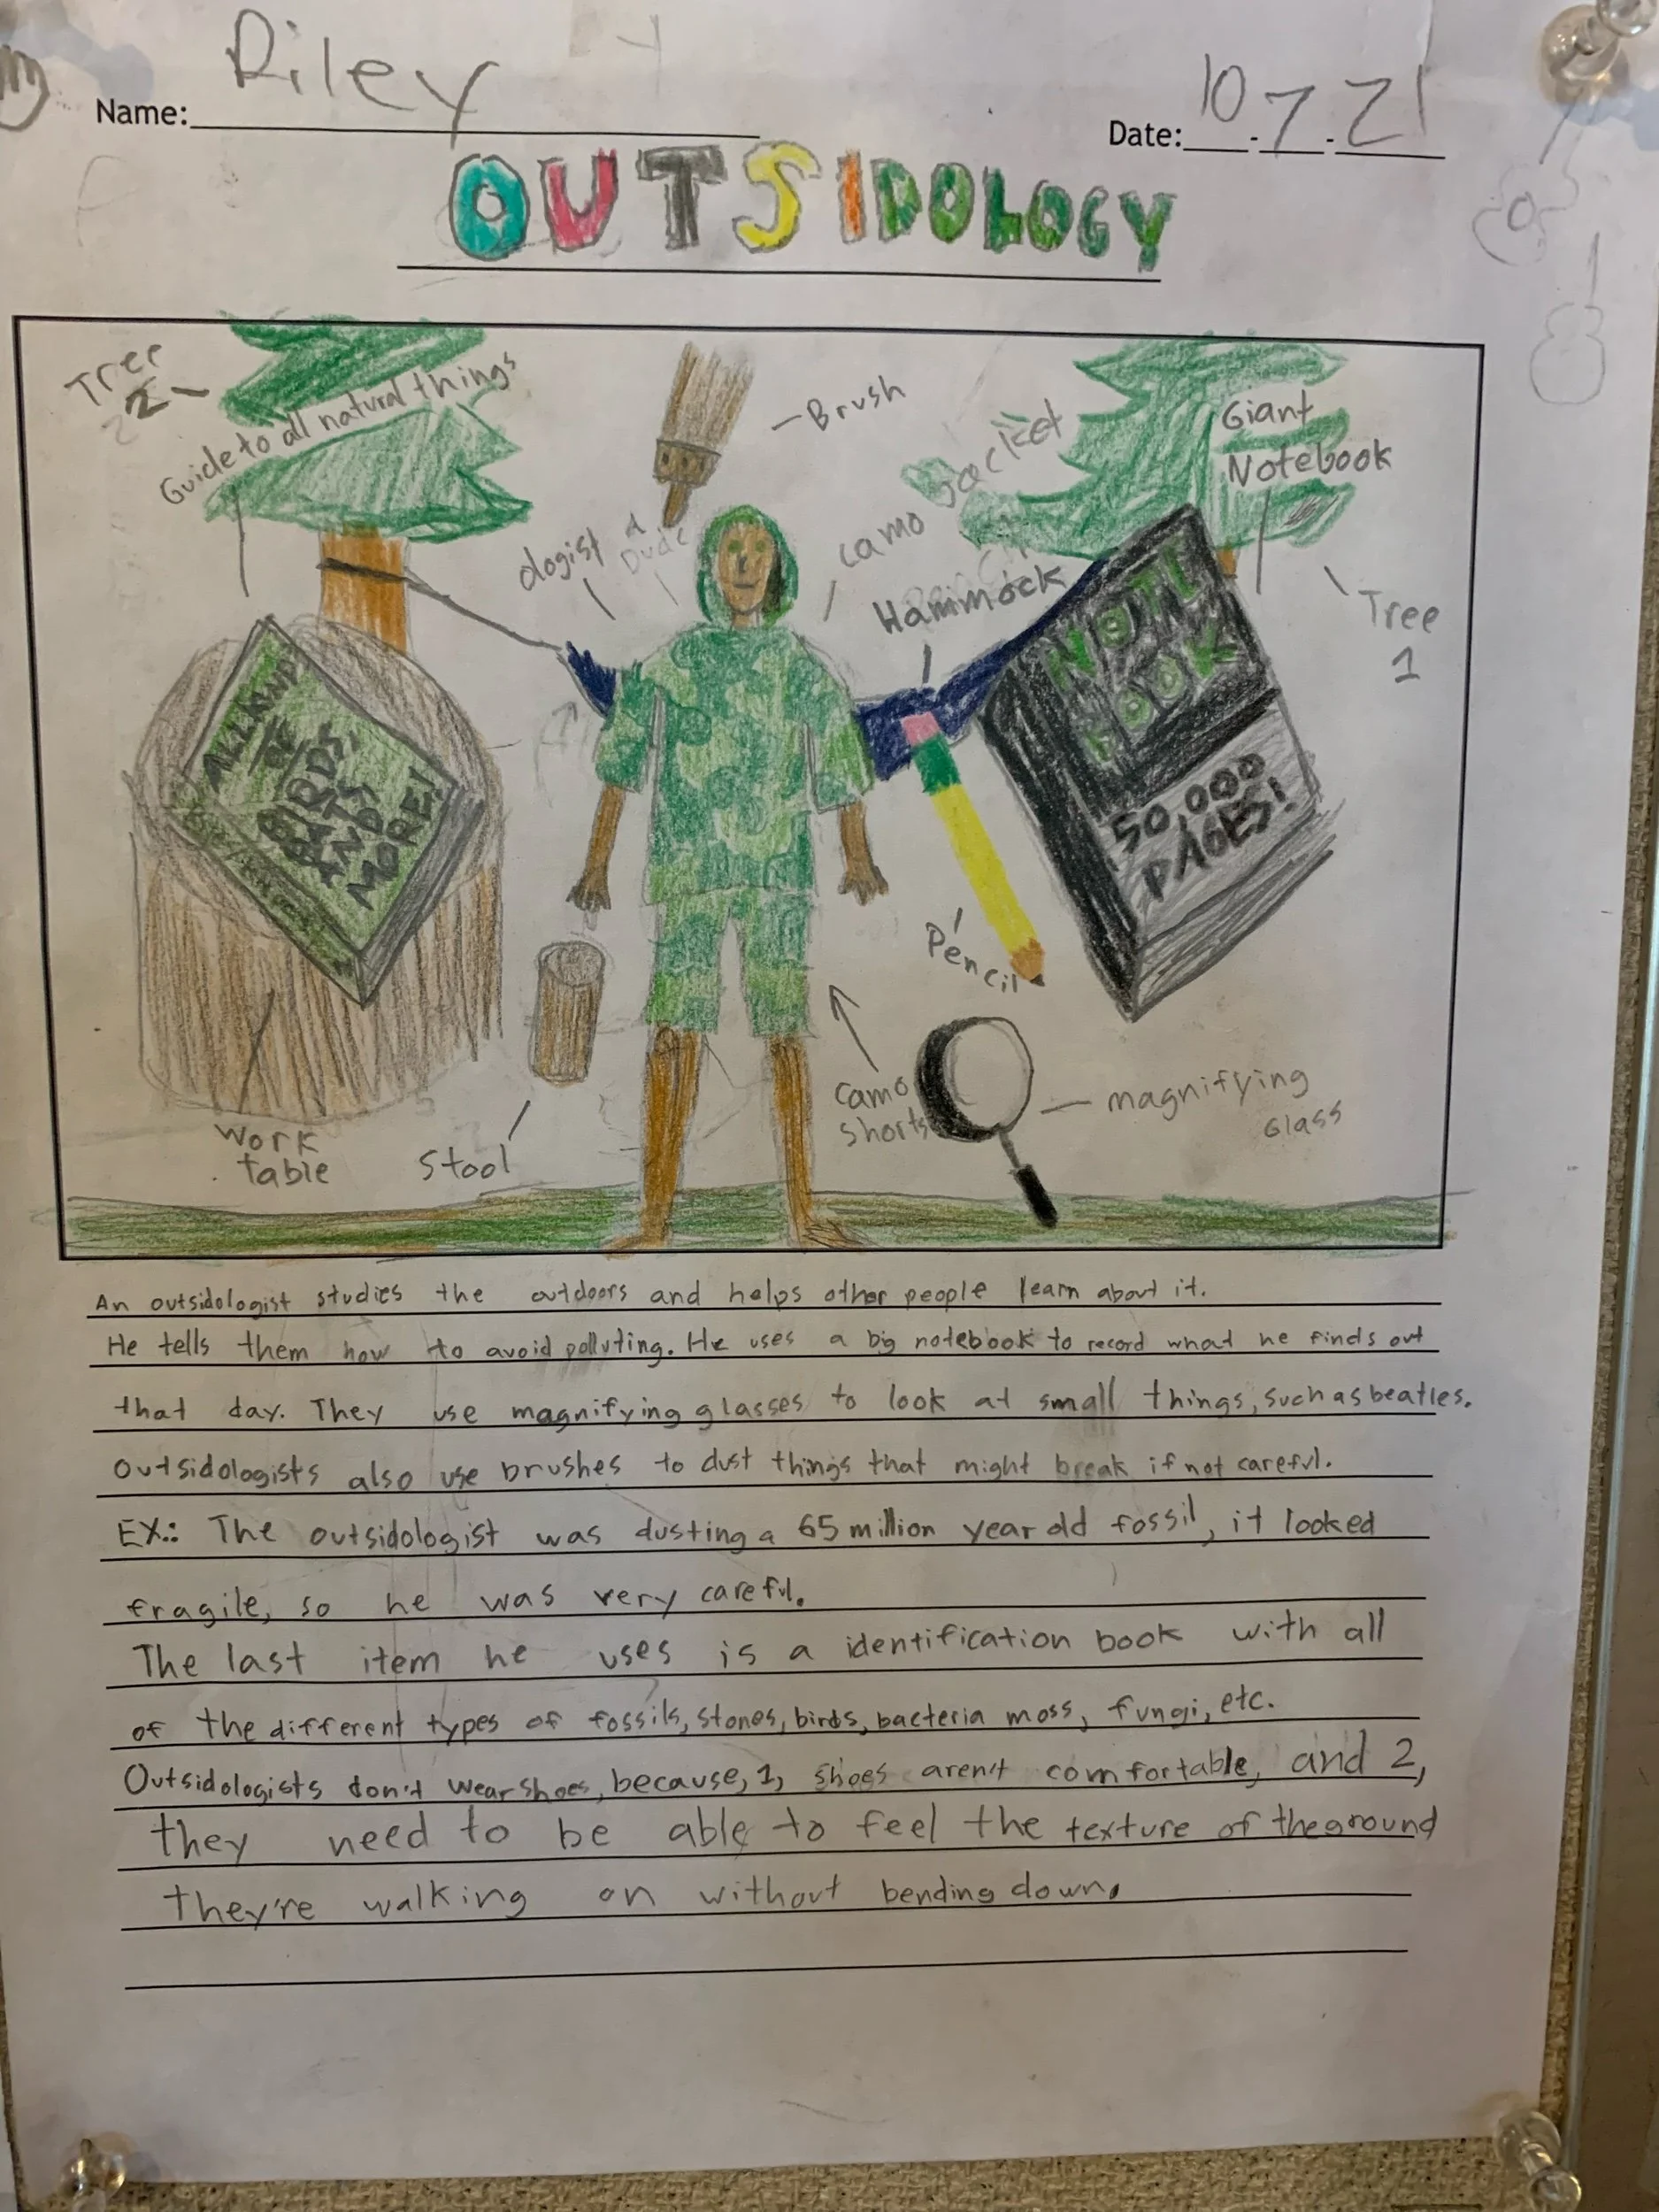 Name: Riley
Date: 10-7-21
OUTSIDOLOGY
Tree
2
Guide to all natural things
Brush
camo Jacket
Giant
Notebook
ologist
a
Dude
Hammock
Tree
1
BIRDS,
AND
MORE!
NOTE
BOOK
50,000
PAGES!
Pencil
work
table
Stool
camo
shorts
magnifying
Glass
An outsidologist studies the outdoors and helps other people learn about it.
He tells them how to avoid polluting. He uses a big notebook to record what he finds out
that day. They use magnifying glasses to look at small things, such as beatles.
Outsidologists also use brushes to dust things that might break if not careful.
EX.: The outsidologist was dusting a 65 million year old fossil, it looked
fragile, so he was very careful.
The last item he uses is a identification book with all
of the different types of fossils, stones, birds, bacteria moss, fungi, etc.
Outsidologists don't wear shoes, because, 1, shoes aren't comfortable, and 2,
they need to be able to feel the texture of the ground
they're walking on without bending down.